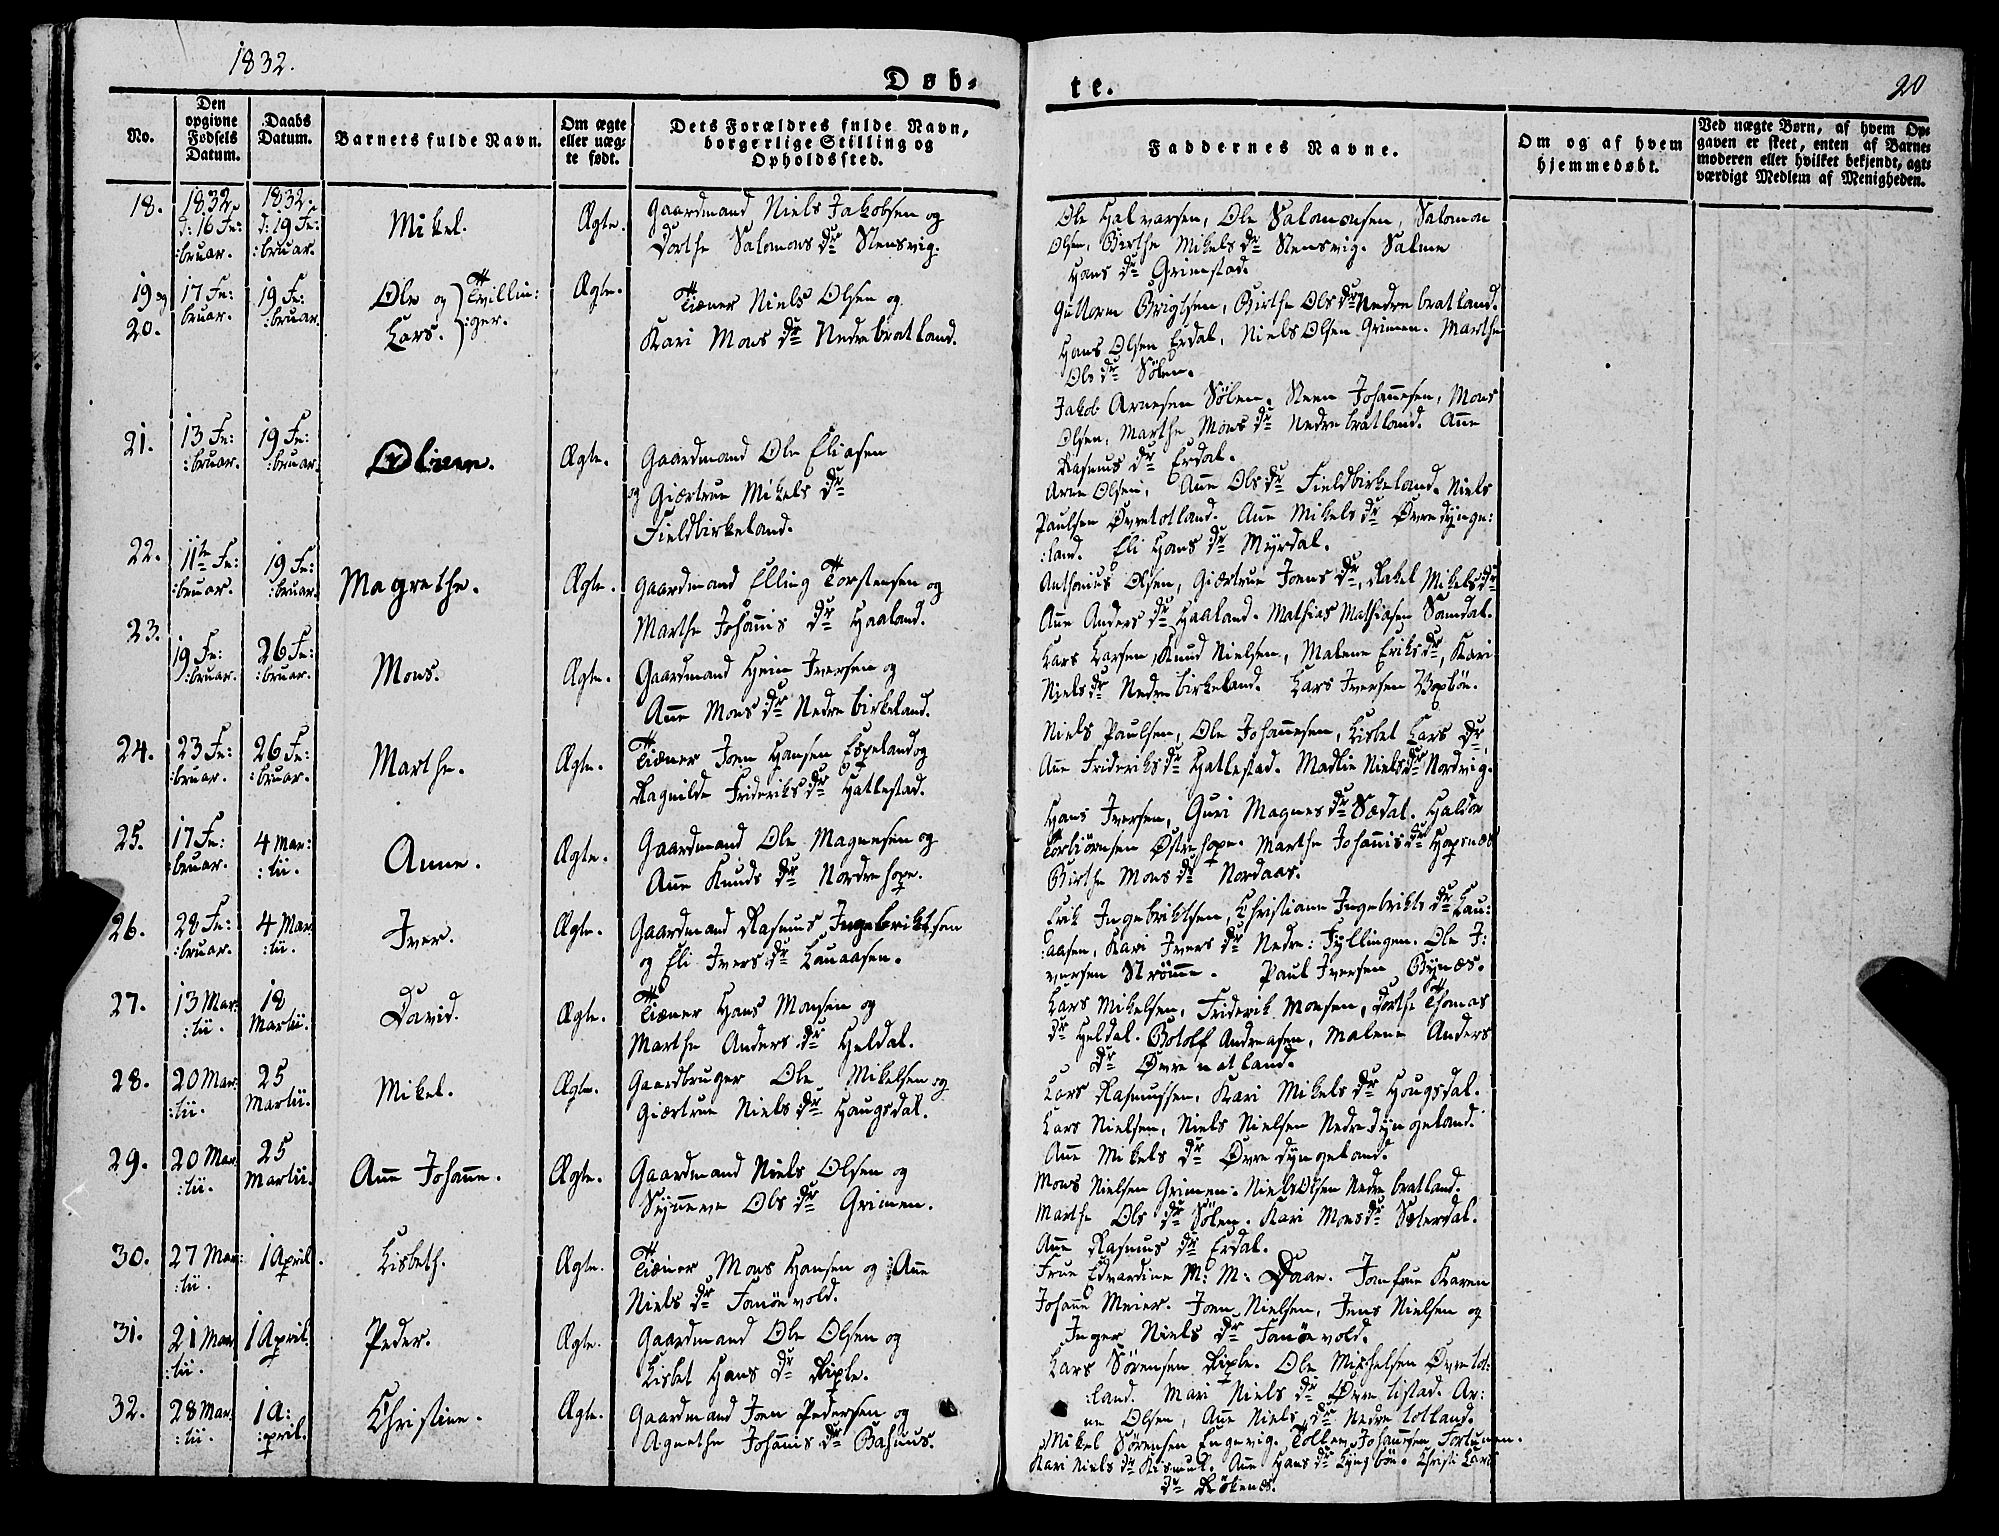 1832.
Døb-
te.
20
No.
Den
opgivne
Fødsels
Datum.
Daabs
Datum.
Barnets fulde Navn.
Om ægte
eller uæg-
te født.
Dets Forældres fulde Navn,
borgerlige Stilling og
Opholdssted.
Faddernes Navne.
Om og af hvem
hjemmedøbt.
Ved uægte Børn, af hvem Op-
gaven er skeet, enten af Barne-
moderen eller hvilket bekjendt, agt-
værdigt Medlem af Menigheden.
18.
1832.
d: 16 Fe:
:bruar.
1832.
d: 19 Fe:
:bruar.
Mikel.
Ægte.
Gaardmand Niels Jakobsen og
Dorthe Salomons dr Stensvig.
Ole Halvarsen, Ole Salomonsen, Salomon
Olsen, Birthe Mikels dr Stensvig. Salme
Hans dr Grimstad.
19 og
20.
17 Fe:
bruar.
19 Fe:
:bruar.
Ole og } Tvillin:
Lars. } :ger.
Ægte.
Tiæner Niels Olsen og
Kari Mons dr Nedrebratland.
Guttorm Brigtsen, Birthe Ols dr Nedrebratland.
Hans Olsen Erdal, Niels Olsen Grimen. Marthe
Ols dr Sølen.
Jakob Arnesen Sølen. Steen Johanesen, Mons
Olsen, Marthe Mons dr Nedrebratland. Ane
Rasmus dr Erdal.
21.
13 Fe:
:bruar.
19 Fe:
:bruar.
Oliver.
Ægte.
Gaardmand Ole Eliasen
og Giærtrue Mikels dr
Fieldbirkeland.
Arne Olsen, Ane Ols dr Fieldbirkeland. Niels
Paulsen Øvretotland. Ane Mikels dr Øvredynge:
:land. Eli Hans dr Myrdal.
22.
11te Fe:
:bruar.
19 Fe:
:bruar.
Magrethe.
Ægte.
Gaardmand Elling Torstensen og
Marthe Johanis dr Haaland.
Anthonius Olsen, Giærtrue Joens dr, Rakel Mikels dr
Ane Anders dr Haaland. Mathias Mathiasen Samdal.
23.
19 Fe:
:bruar.
26 Fe:
:bruar.
Mons.
Ægte.
Gaardmand Hein Iversen og
Ane Mons dr Nedrebirkeland.
Lars Larsen, Knud Nielsen, Malene Eriks dr, Kari
Niels dr Nedrebirkeland. Lars Iversen
24.
23 Fe:
:bruar.
26 Fe:
:bruar.
Marthe.
Ægte.
Tiæner Joen Hansen Espeland og
Ragnilde Frideriks dr Hatlestad.
Niels Paulsen, Ole Johanesen, Lisbet Lars dr,
Ane Frideriks dr Hatlestad. Madlie Niels dr Nordvig.
25.
17 Fe:
:bruar.
4 Mar:
:tii.
Anne.
Ægte.
Gaardmand Ole Magnesen og
Ane Knuds dr Nordrehope.
Hans Iversen, Guri Magnes dr Sædal. Haldor
Torbiørnsen Østrehope. Marthe Johanis dr Hopsnæs
Birthe Mons dr Nordaas.
26.
28 Fe:
:bruar.
4 Mar:
:tii.
Iver.
Ægte.
Gaardmand Rasmus Ingebriktsen
og Eli Ivers dr Lauaasen.
Erik Ingebriktsen, Christiane Ingebrikts dr Lau:
:aasen, Kari Ivers dr Nedre: Fyllingen. Ole I:
versen Strømme. Paul Iversen Bynæs.
27.
13 Mar:
:tii.
18
Martii.
David.
Ægte.
Tiæner Hans Monsen og
Marthe Anders dr Heldal.
Lars Mikelsen, Friderik Monsen, Dorthe Thomas
dr Heldal. Botolf Andreasen, Malene Anders
dr Øvrenatland.
28.
20 Mar:
:tii.
25
Martii.
Mikel.
Ægte.
Gaardbruger Ole Mikelsen og
Giærtrue Niels dr Haugsdal.
Lars Rasmussen, Kari Mikels dr Hougsdal.
Lars Nielsen, Niels Nielsen Nedredyngeland.
Ane Mikels dr Øvredyngeland.
29.
20 Mar:
:tii.
25
Martii.
Ane Johane.
Ægte.
Gaardmand Niels Olsen og
Synneve Ols dr Grimen.
Mons Nielsen Grimen. Niels Olsen Nedrebratland.
Marthe Ols dr Sølen. Kari Mons dr Sæterdal.
Ane Rasmus dr Erdal.
30.
27 Mar:
:tii.
1 April.
Lisbeth.
Ægte.
Tiæner Mons Hansen og Ane
Niels dr Fanøevold.
Frue Edvardine M: M: Daae. Jomfrue Karen
Johane Meier. Joen Nielsen, Jens Nielsen og
Inger Niels dr Fanøevold.
31.
21 Mar
:tii.
1 April.
Peder.
Ægte.
Gaardmand Ole Olsen og
Lisbet Hans dr Riple.
Lars Sørensen Riple. Ole Mikkelsen Øvretot:
:land. Mari Niels dr Øvretistad. Ar:
ne Olsen, Ane Niels dr Nedretotland.
32.
28 Mar:
:tii.
1 A:
:pril.
Christine.
Ægte.
Gaardmand Joen Pedersen og
Agnethe Johanis dr
Mikel Sørensen Engevig. Tollev Johanesen Fortunen.
Kari Niels dr Kismul. Ane Hans dr Lyngbøe. Christi Lars
dr Røkenæs.